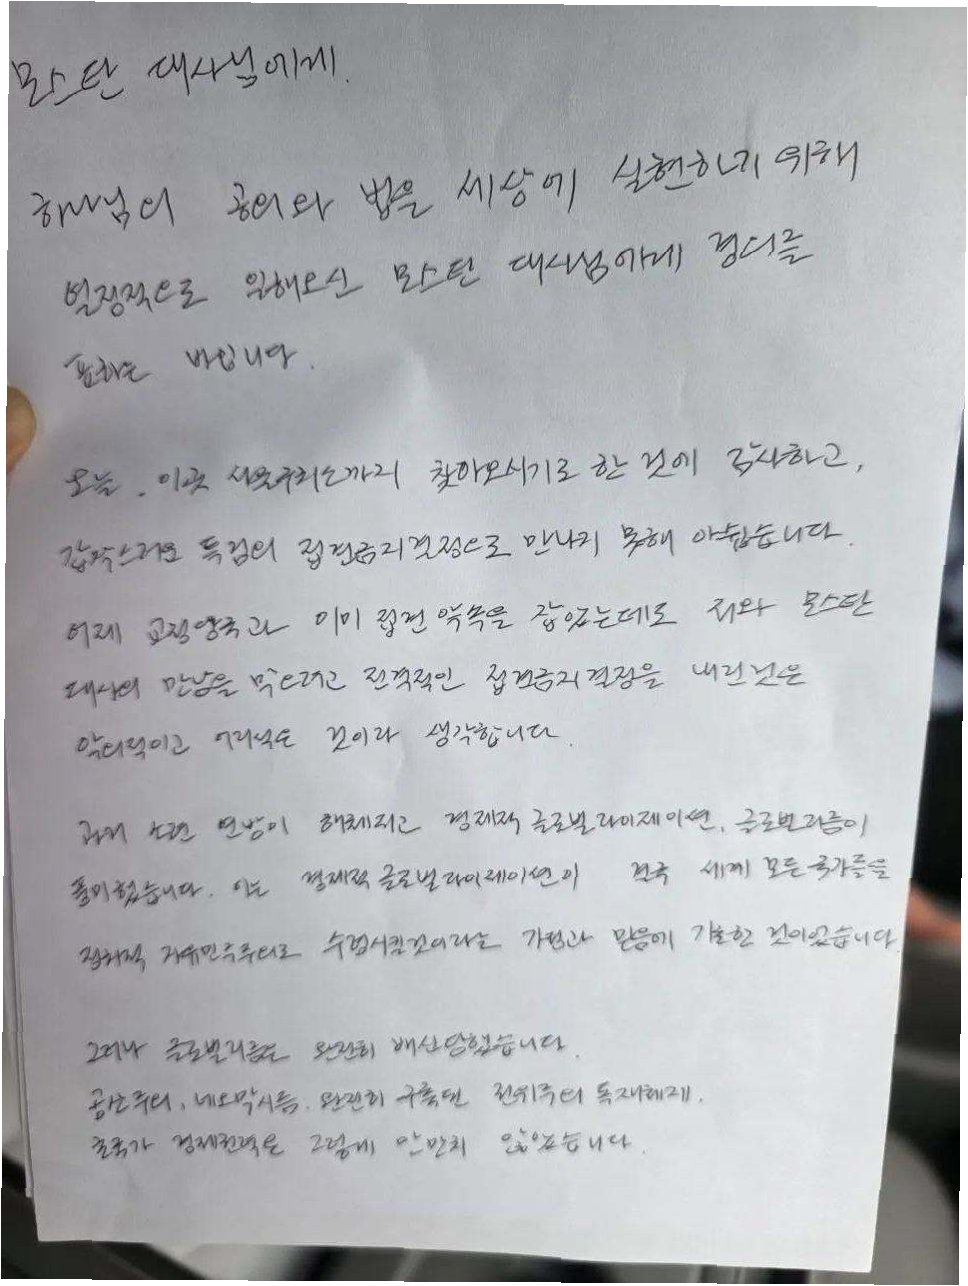 모스탄 대사님에게.
하나님의 공의와 법을 세상에 실현하기 위해
열정적으로 일해오신 모스탄 대사님에게 경의를
표하는 바입니다.
오늘, 이곳 서울구치소까지 찾아오시기로 한 것에 감사하고,
갑작스러운 특검의 접견금지결정으로 만나지 못해 아쉽습니다.
어제 교정당국과 이미 접견 약속을 잡았는데도 저와 모스탄
대사의 만남을 막으려고 전격적인 접견금지결정을 내린것은
악의적이고 어리석은 것이라 생각합니다.
과거 소련 연방이 해체되고 경제적 글로벌라이제이션, 글로벌리즘이
풍미했습니다. 이는 경제적 글로벌라이제이션이 결국 세계 모든 국가들을
정치적 자유민주주의로 수렴시킬것이라는 가정과 믿음에 기초한 것이었습니다
그러나 글로벌리즘은 완전히 배신당했습니다.
공산주의, 네오막시즘, 완전히 구축된 전위주의 독재체제,
초국가 경제권력은 그렇게 만만치 않았습니다.